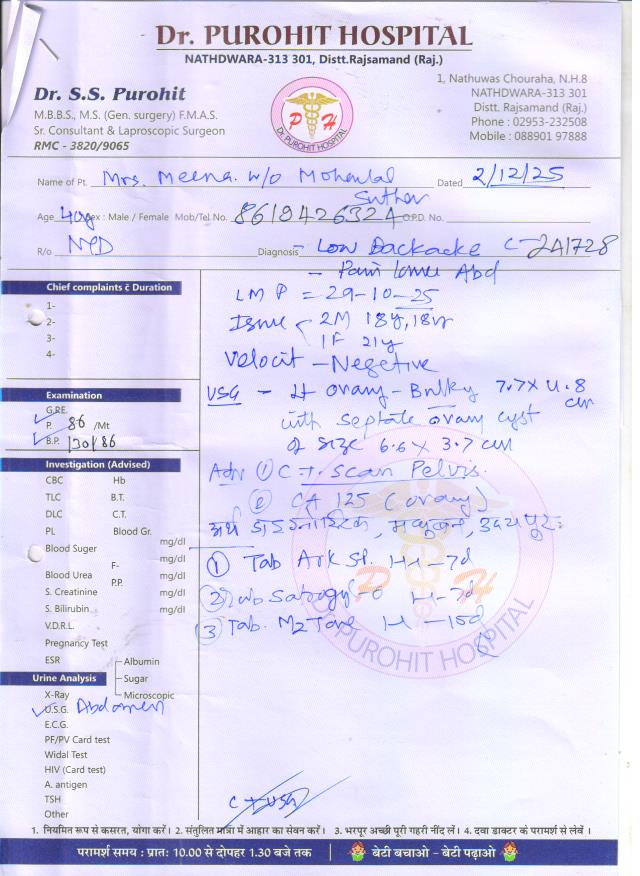 Dr. PUROHIT HOSPITAL
NATHDWARA-313 301, Distt.Rajsamand (Raj.)
Dr. S.S. Purohit
M.B.B.S., M.S. (Gen. surgery) F.M.A.S.
Sr. Consultant & Laproscopic Surgeon
RMC - 3820/9065
P H
Dr. PUROHIT HOSPITAL
1, Nathuwas Chouraha, N.H.8
NATHDWARA-313 301
Distt. Rajsamand (Raj.)
Phone : 02953-232508
Mobile : 088901 97888
Name of Pt. Mrs. Meena w/o Mohanlal Dated 2/12/25
Suthar
Age 40y Sex : Male / Female Mob/Tel.No. 8619426324 O.P.D. No.
R/o NTD Diagnosis - Low Backache C-241728
- Pain lower Abd
Chief complaints c̄ Duration
1-
2-
3-
4-
LMP = 29-10-25
Issue - 2M 18y, 18y
1F 21y
Velocit - Negetive
Examination
G.RE.
P. 86 /Mt
B.P. 130/86
USG - Lt ovary - Bulky 7.7 x 4.8 cm
with septate ovary cyst
of size 6.6 x 3.7 cm
Adv ① C.T. Scan Pelvis.
② CA 125 (ovary)
अर्थ डाइग्नोस्टिक, मधुबन, उदयपुर
Investigation (Advised)
CBC Hb
TLC B.T.
DLC C.T.
PL Blood Gr.
Blood Suger mg/dl
F- mg/dl
Blood Urea P.P. mg/dl
S. Creatinine mg/dl
S. Bilirubin mg/dl
V.D.R.L.
Pregnancy Test
ESR Albumin
Urine Analysis Sugar
X-Ray Microscopic
U.S.G. Abdomen
E.C.G.
PF/PV Card test
Widal Test
HIV (Card test)
A. antigen
TSH
Other
① Tab Ark SP. 1-1 - 7d
② Tab Satrogyl-O 1-1 - 7d
③ Tab. M2Tone 1-1 - 15d
P H
Dr. PUROHIT HOSPITAL
C + USG
1. नियमित रूप से कसरत, योगा करें। 2. संतुलित मात्रा में आहार का सेवन करें। 3. भरपूर अच्छी पूरी गहरी नींद लें। 4. दवा डाक्टर के परामर्श से लेवें।
परामर्श समय : प्रातः 10.00 से दोपहर 1.30 बजे तक
बेटी बचाओ - बेटी पढ़ाओ